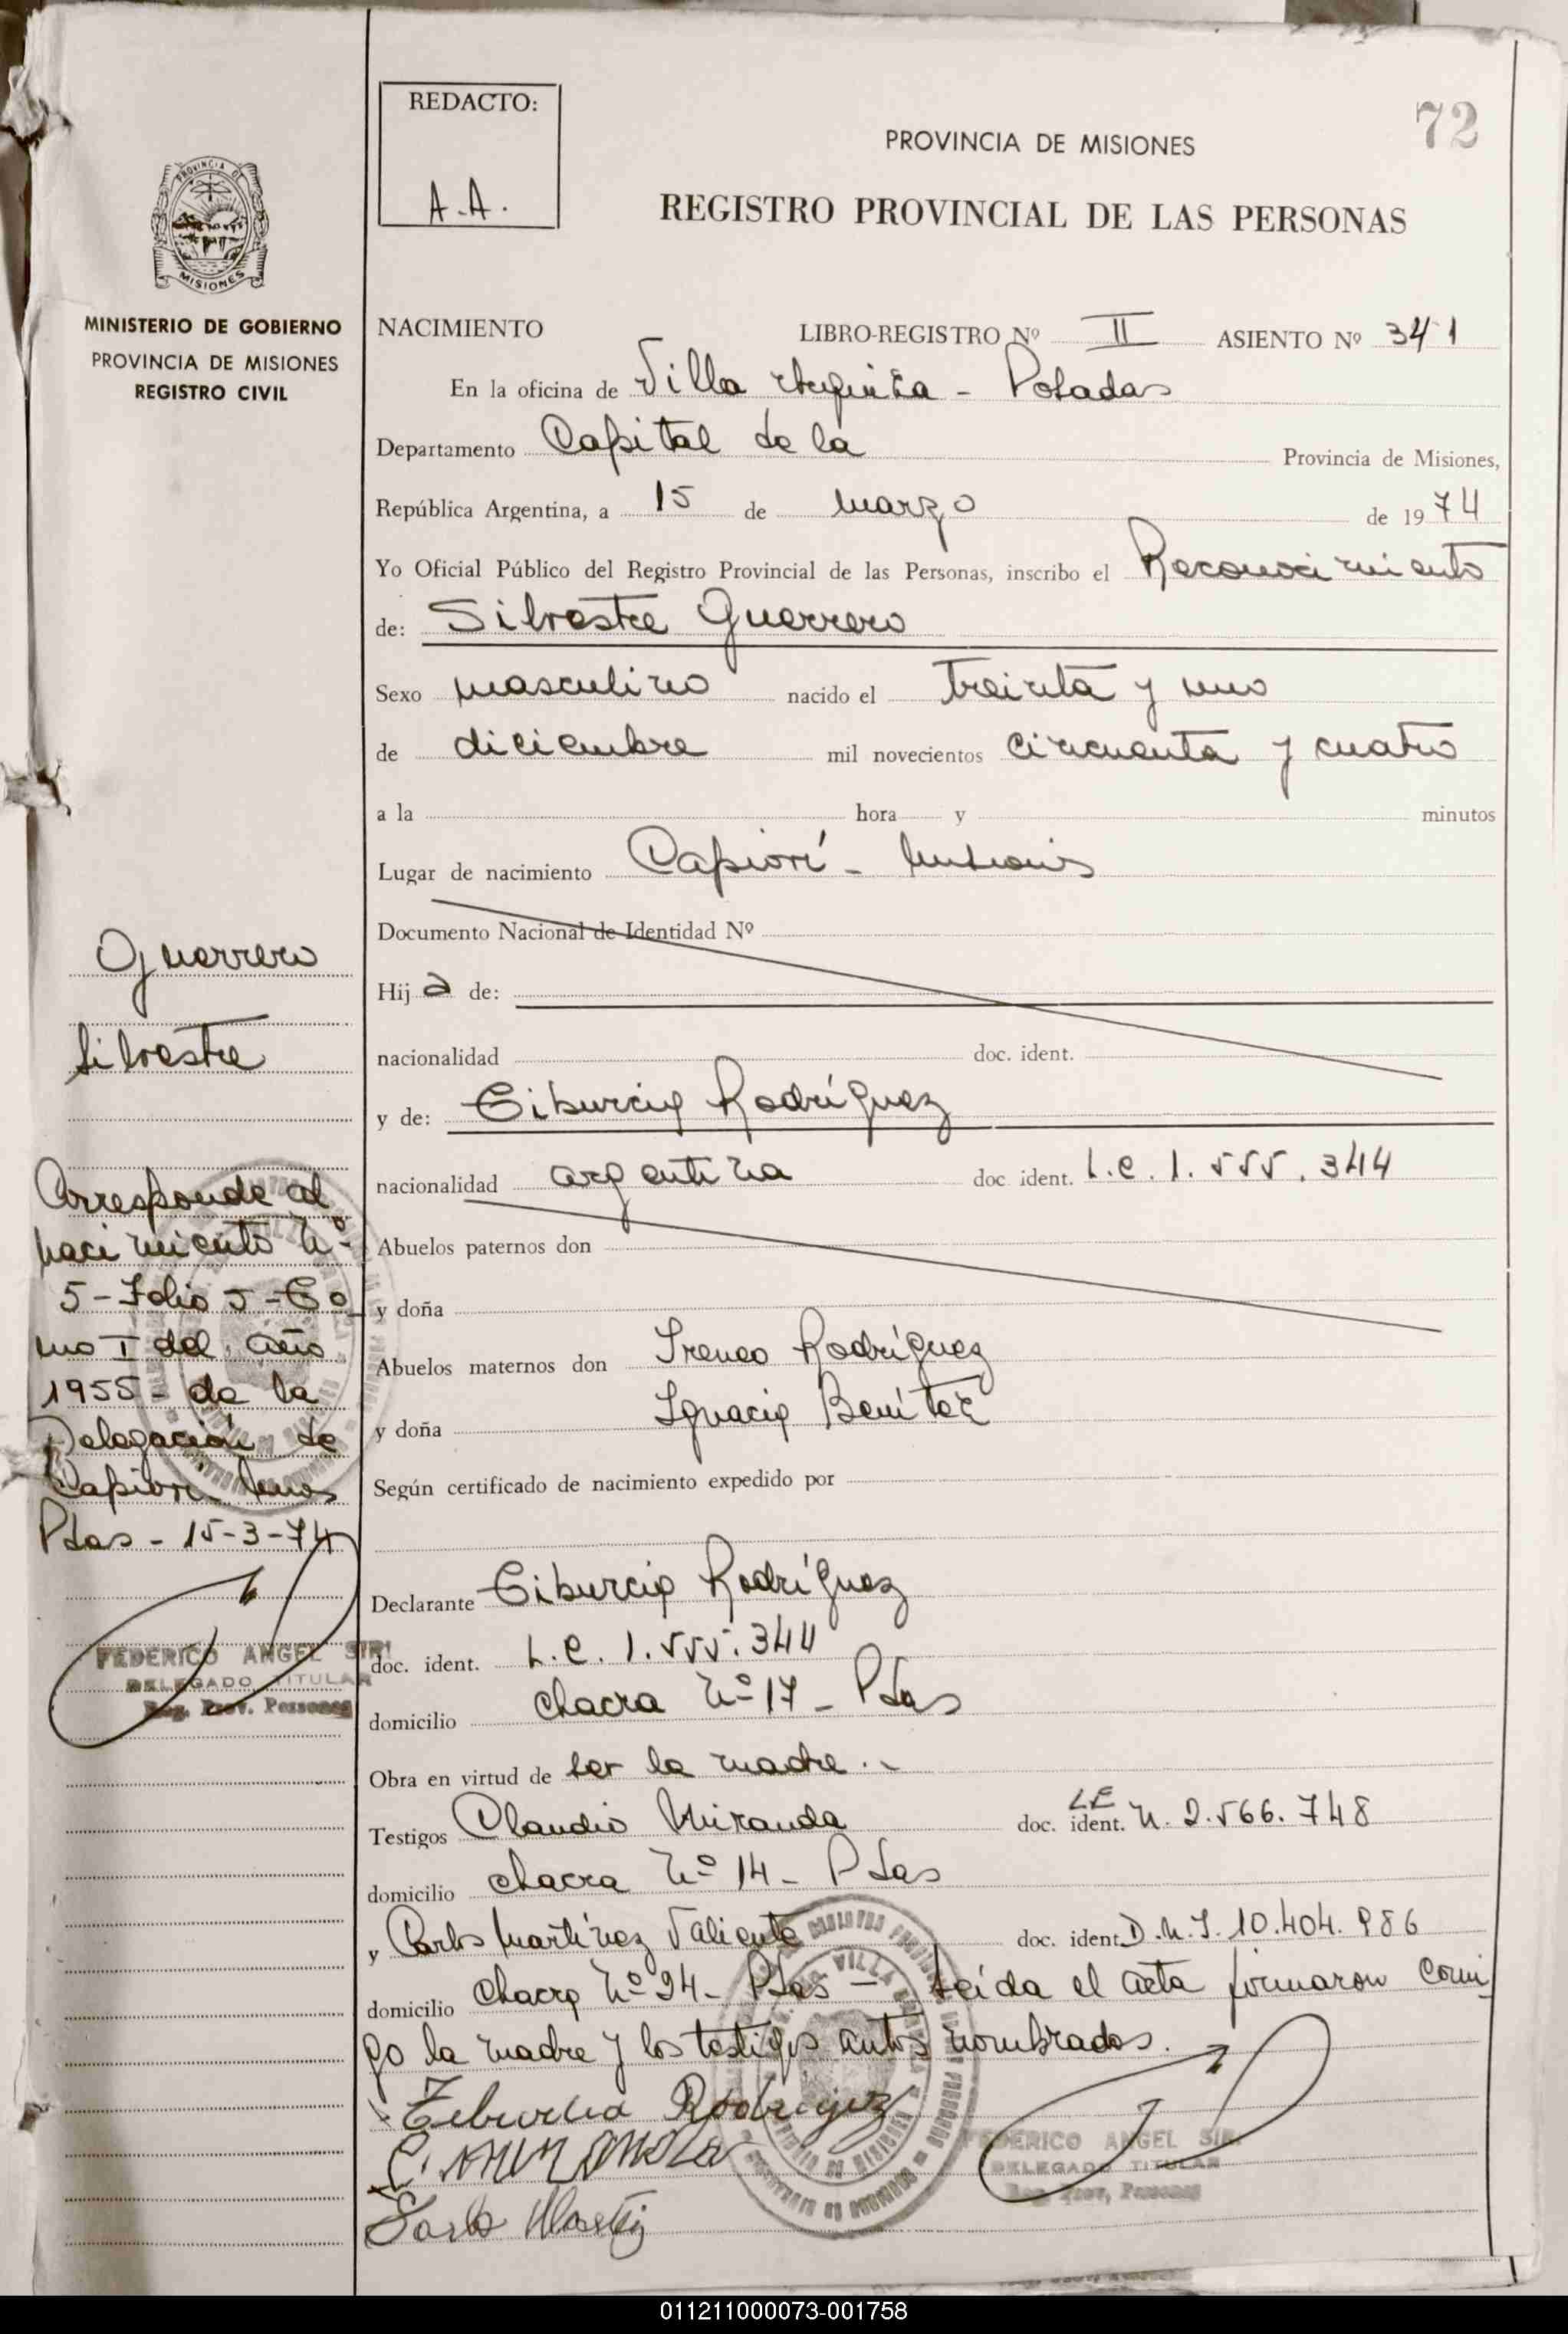 72
REDACTO:
A.A.
PROVINCIA DE MISIONES
REGISTRO PROVINCIAL DE LAS PERSONAS
PROVINCIA DE
MISIONES
MINISTERIO DE GOBIERNO
PROVINCIA DE MISIONES
REGISTRO CIVIL
NACIMIENTO LIBRO-REGISTRO Nº II ASIENTO Nº 341
En la oficina de Villa Urquiza - Posadas
Departamento Capital de la Provincia de Misiones,
República Argentina, a 15 de marzo de 1974
Yo Oficial Público del Registro Provincial de las Personas, inscribo el Reconocimiento
de: Silvestre Guerrero
Sexo masculino nacido el treinta y uno
de diciembre mil novecientos cincuenta y cuatro
a la hora y minutos
Lugar de nacimiento Capioví - Misiones
Documento Nacional de Identidad Nº
Hij de:
nacionalidad doc. ident.
y de: Tiburcia Rodríguez
nacionalidad argentina doc. ident. L.C. 1.555.344
Abuelos paternos don
y doña
Abuelos maternos don Ireneo Rodríguez
y doña Ignacia Benítez
Según certificado de nacimiento expedido por
Declarante Tiburcia Rodríguez
doc. ident. L.C. 1.555.344
domicilio chacra Nº 17 - Pdas
Obra en virtud de ser la madre.-
Testigos Claudio Miranda doc. ident. LE N. 2.566.748
domicilio chacra Nº 14 - Pdas
y Carlos Martínez Valiente doc. ident. D.N.I. 10.404.986
domicilio chacra Nº 94 - Pdas - Leída el acta firmaron conmi
go la madre y los testigos antes nombrados.
Teburcia Rodriguez
C. Miranda
FEDERICO ANGEL SIRI
DELEGADO TITULAR
Reg. Prov. Personas
Guerrero
Silvestre
Corresponde al
nacimiento Nº
5 - Folio 5 - To
mo I del año
1955 - de la
Delegación de
Capioví Mnes
Pdas - 15-3-74
FEDERICO ANGEL SIRI
DELEGADO TITULAR
Reg. Prov. Personas
011211000073-001758